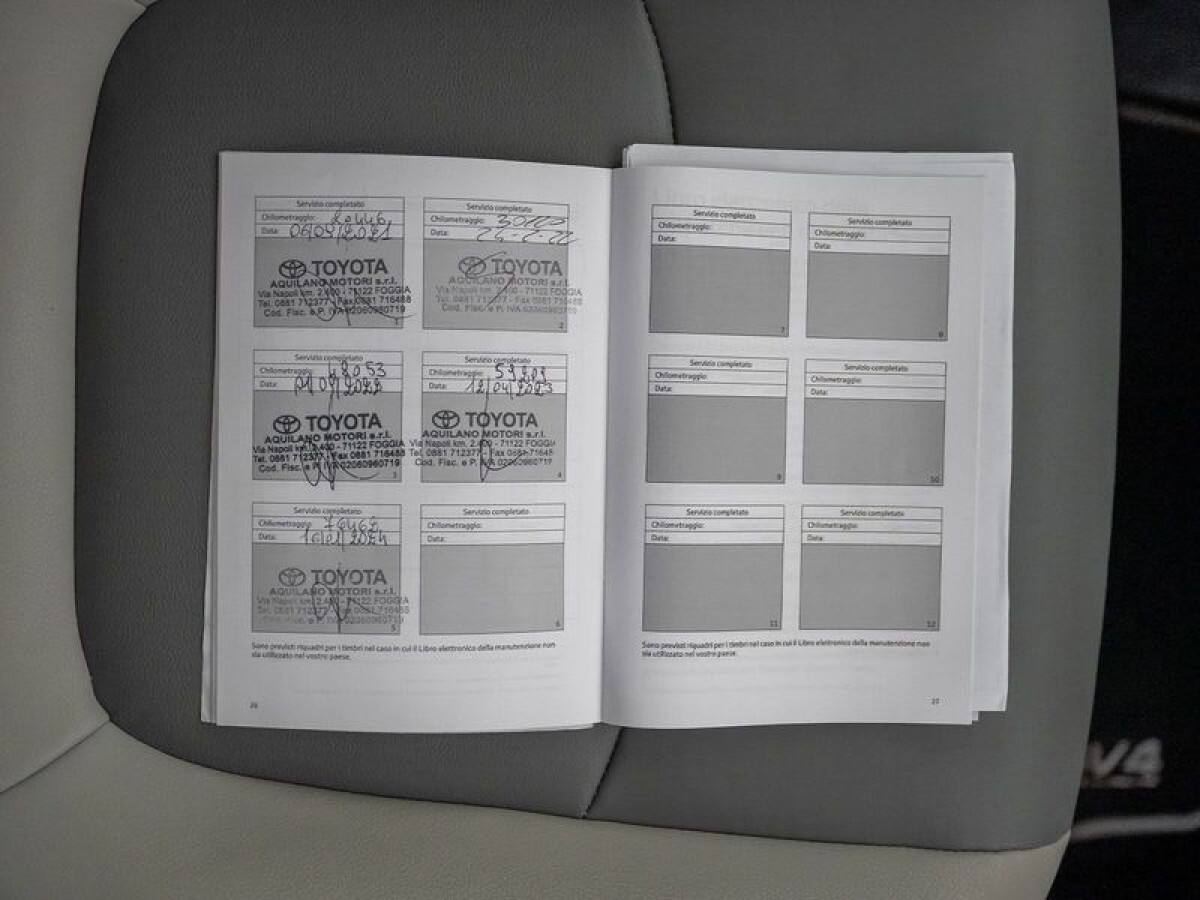 Servizio completato
Chilometraggio: 20446
Data: 06/09/2021
TOYOTA
AQUILANO MOTORI s.r.l.
Via Napoli km. 2.400 - 71122 FOGGIA
Tel. 0881 712377 - Fax 0881 716488
Cod. Fisc. e P. IVA 02060960719
1
Servizio completato
Chilometraggio:
Data: 22
TOYOTA
AQUILANO MOTORI s.r.l.
Via Napoli km. 2.400 - 71122 FOGGIA
Tel. 0881 712377 - Fax 0881 716488
Cod. Fisc. e P. IVA 02060960719
2
Servizio completato
Chilometraggio: 42053
Data: 01/09/2022
TOYOTA
AQUILANO MOTORI s.r.l.
Via Napoli km. 2.400 - 71122 FOGGIA
Tel. 0881 712377 - Fax 0881 716488
Cod. Fisc. e P. IVA 02060960719
3
Servizio completato
Chilometraggio:
Data: 12/04/2023
TOYOTA
AQUILANO MOTORI s.r.l.
Via Napoli km. 2.400 - 71122 FOGGIA
Tel. 0881 712377 - Fax 0881 71648
Cod. Fisc. e P. IVA 02060960719
4
Servizio completato
Chilometraggio:
Data: 16/01/2024
TOYOTA
AQUILANO MOTORI s.r.l.
Via Napoli km. 2.400 - 71122 FOGGIA
Tel. 0881 712377 - Fax 0881 716488
Cod. Fisc. e P. IVA 02060960719
5
Servizio completato
Chilometraggio:
Data:
6
Sono previsti riquadri per i timbri nel caso in cui il Libro elettronico della manutenzione non
sia utilizzato nel vostro paese.
26
Servizio completato
Chilometraggio:
Data:
7
Servizio completato
Chilometraggio:
Data:
8
Servizio completato
Chilometraggio:
Data:
9
Servizio completato
Chilometraggio:
Data:
10
Servizio completato
Chilometraggio:
Data:
11
Servizio completato
Chilometraggio:
Data:
12
Sono previsti riquadri per i timbri nel caso in cui il Libro elettronico della manutenzione non
sia utilizzato nel vostro paese.
27
V4